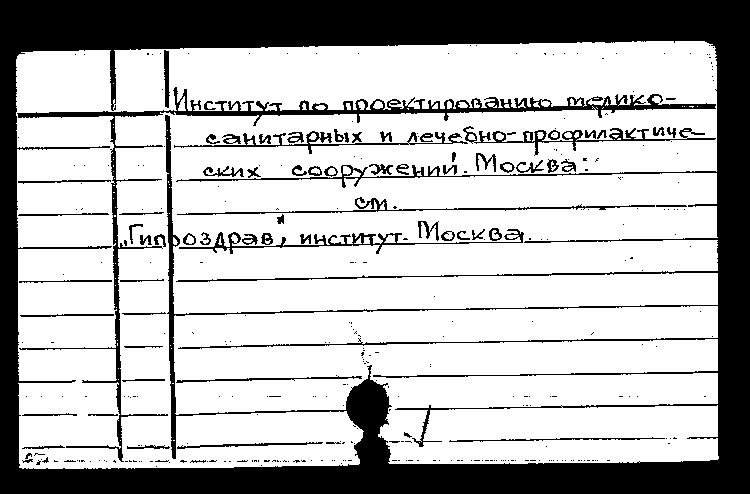 Институт по проектированию медико-
санитарных и лечебно-профилактиче-
ских сооружений. Москва.
см.
„Гипроздрав", институт. Москва.